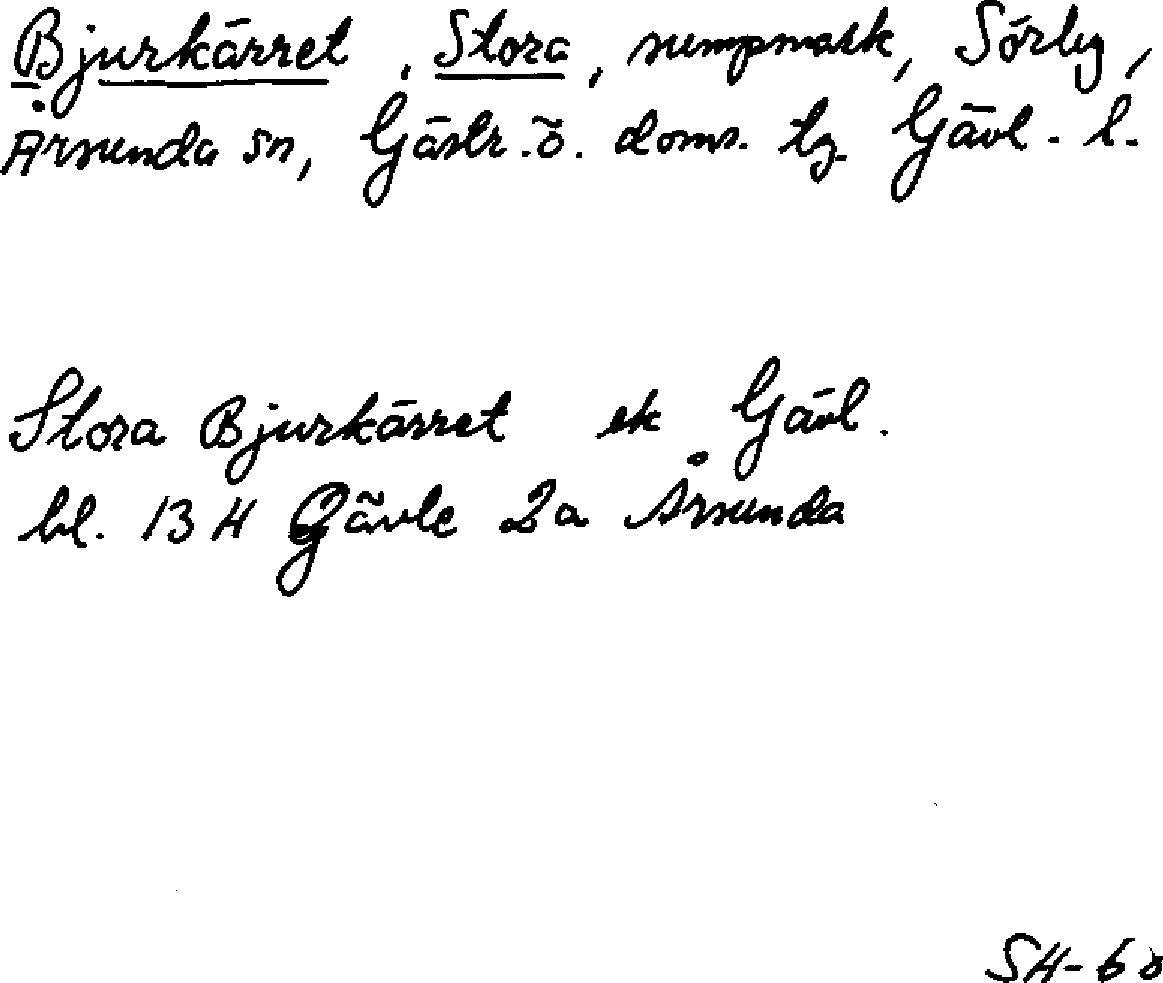 Bjurkärret, Stora, sumpmark, Sörby,
Årsunda sn, Gästr. ö. doms. tg. Gävl. l.
Stora Bjurkärret ek Gävl.
bl. 13 H Gävle 2a Årsunda
SH-60